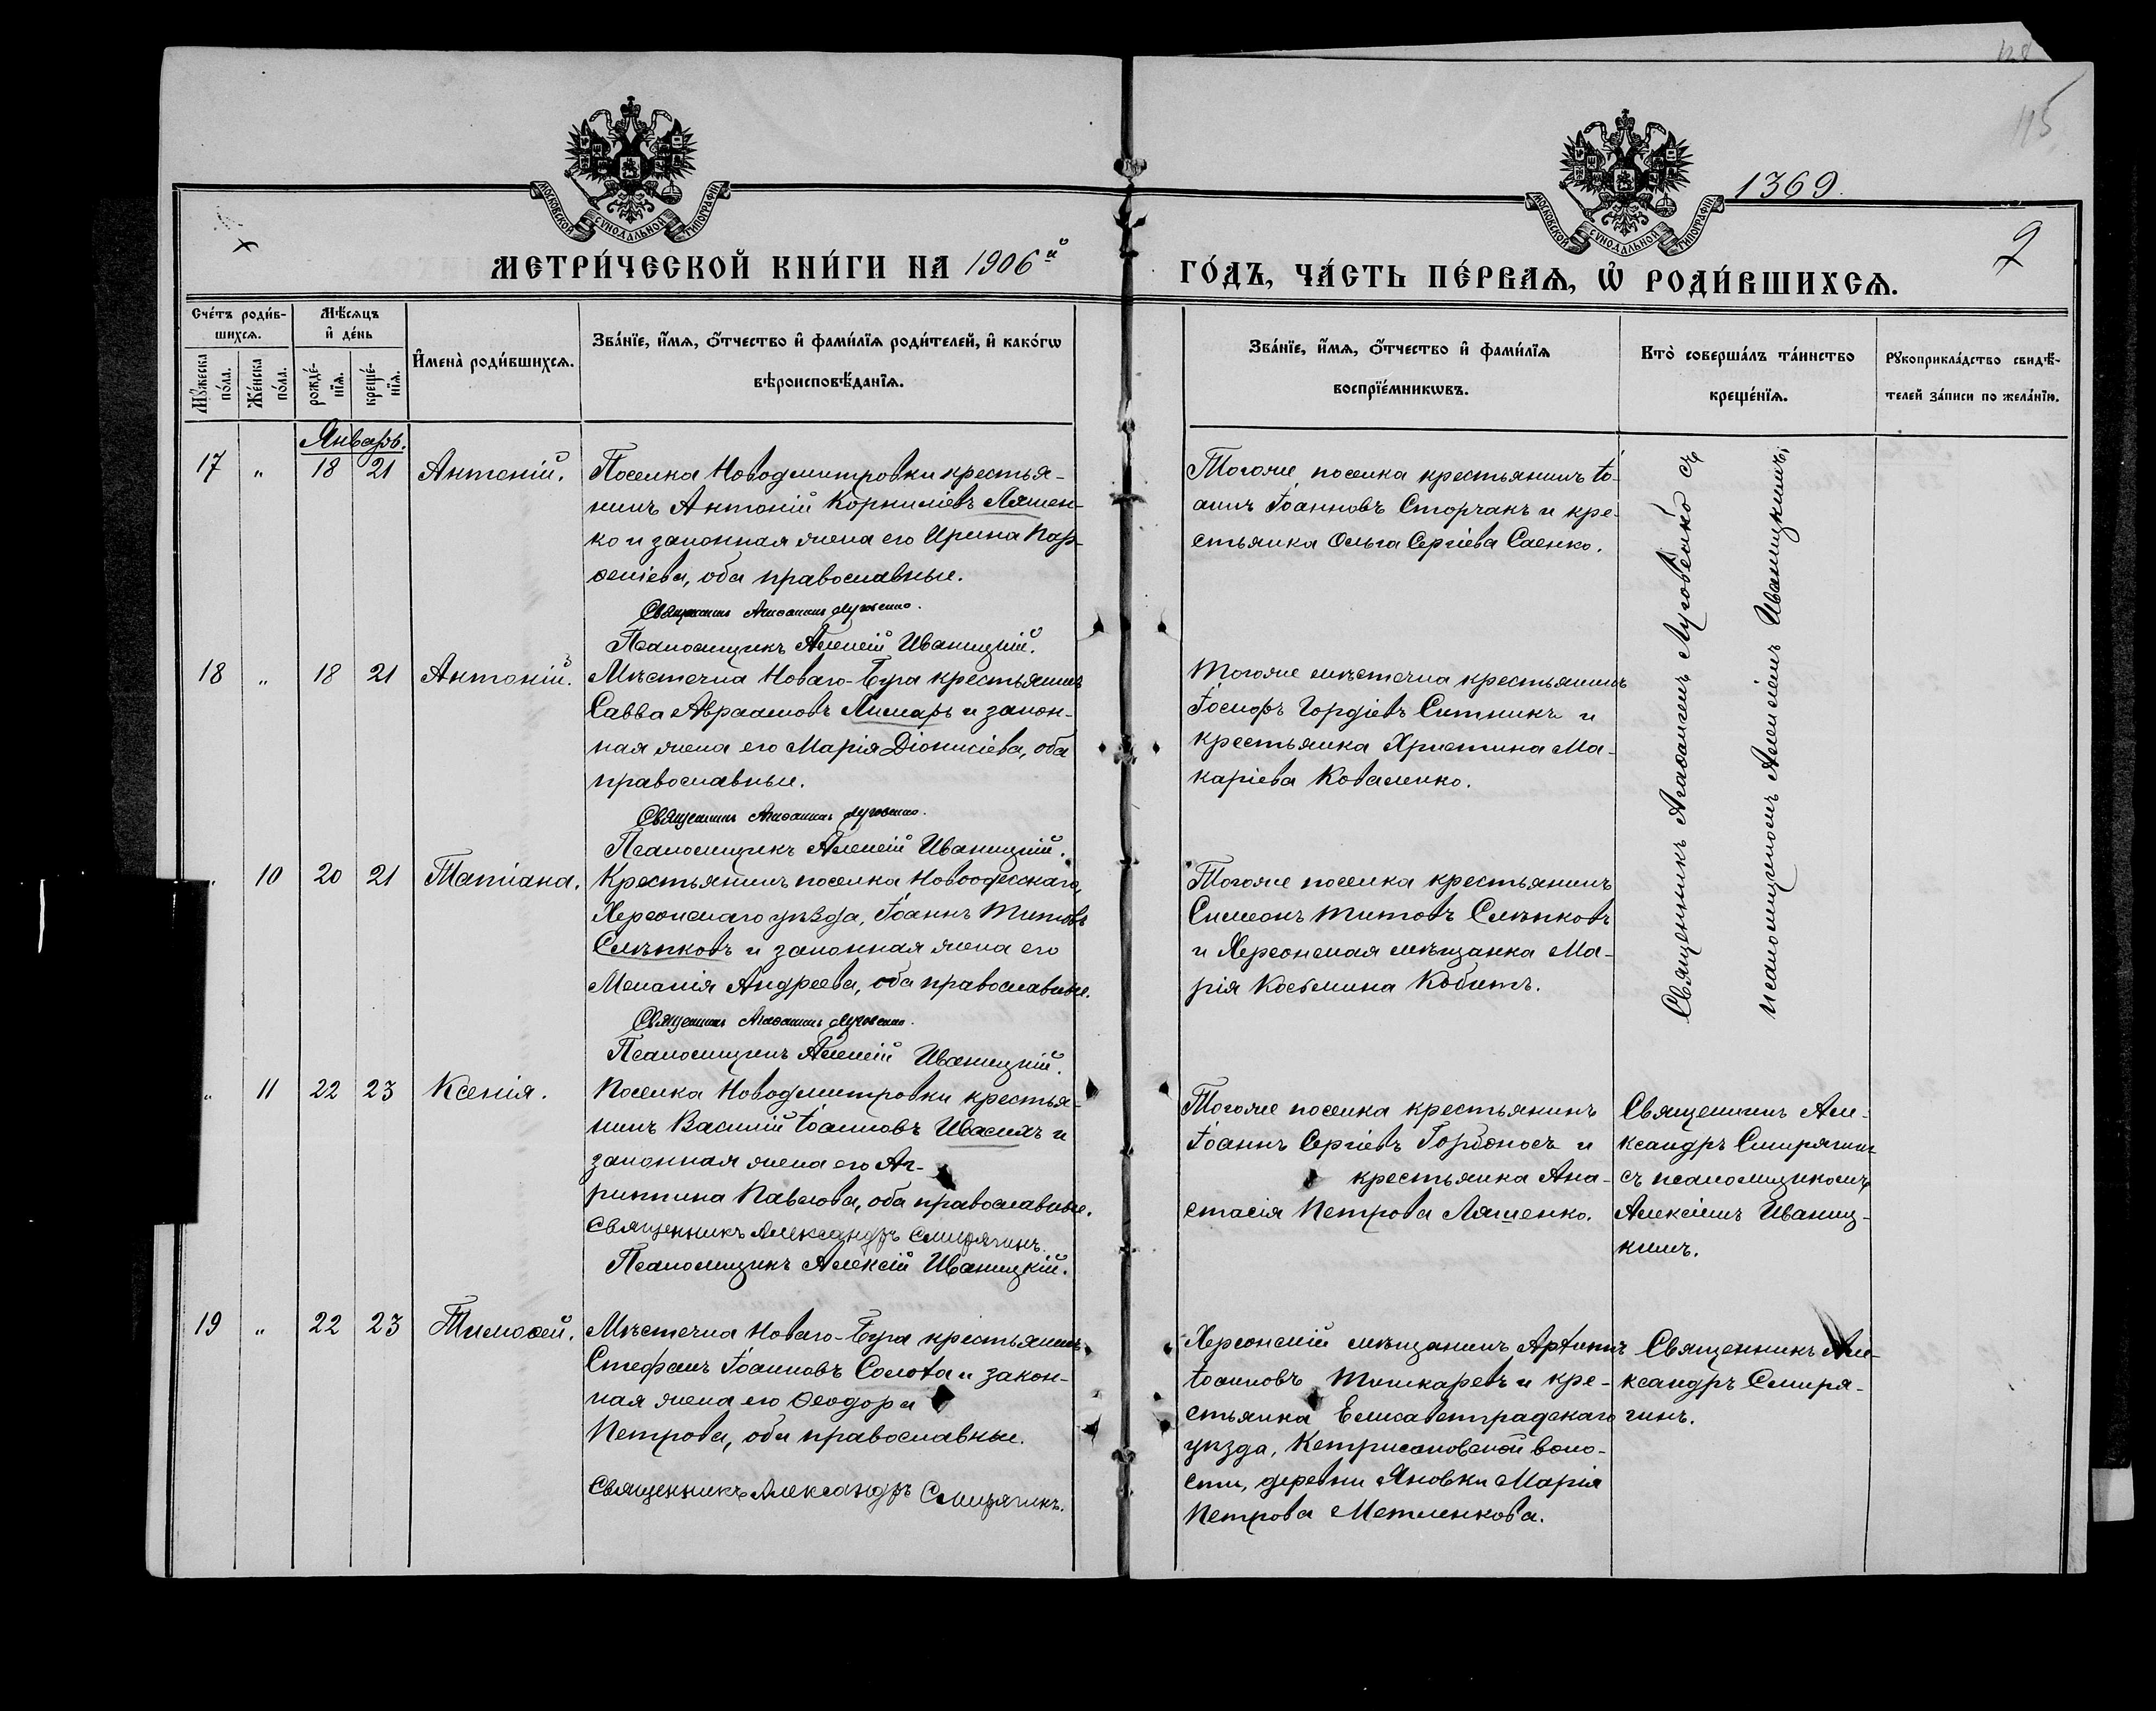 128
115
1369.
9
МОСКОВСКОЙ СѴНОДАЛЬНОЙ ТИПОГРАФІИ
МОСКОВСКОЙ СѴНОДАЛЬНОЙ ТИПОГРАФІИ
МЕТРИ́ЧЕСКОЙ КНИ́ГИ НА 1906й
ГО́ДЪ, ЧА́СТЬ ПЕ́РВАѦ, Ѡ҆ РОДИ́ВШИХСѦ.
Сче́тъ роди́в-
шихсѧ.
Мѣ́сѧцъ
и҆ де́нь
Мꙋ́жеска
по́ла.
Же́нска
по́ла.
рожде́-
нїѧ.
креще́-
нїѧ.
И҆мена̀ роди́вшихсѧ.
Зва́нїе, и҆́мѧ, ѻ҆́тчество и҆ фами́лїѧ роди́телей, и҆ како́гѡ
вѣроисповѣ́данїѧ.
Зва́нїе, и҆́мѧ, ѻ҆́тчество и҆ фами́лїѧ
воспрїе́мникѡвъ.
Кто̀ соверша́лъ та́инство
креще́нїѧ.
Рꙋкоприкла́дство свидѣ́-
телей за́писи по жела́нїю.
Январь.
17 „ 18 21 Антоній.
Поселка Новодмитровки крестья-
нинъ Антоній Корниліевъ Ляшен-
ко и законная жена его Ирина Пар-
ѳеніева, оба православные.
Священникъ Агаѳангелъ Луговенко.
Псаломщикъ Алексій Иваницкій.
Тогоже поселка крестьянинъ Іо-
аннъ Іоанновъ Сторчакъ и кре-
стьянка Ольга Сергіева Саенко.
Священникъ Агаѳангелъ Луговенко съ
псаломщикомъ Алексіемъ Иваницкимъ.
18 „ 18 21 Антоній.
Мѣстечка Новаго-Буга крестьянинъ
Савва Авраамовъ Лимарь и закон-
ная жена его Марія Діонисіева, оба
православные.
Священникъ Агаѳангелъ Луговенко.
Псаломщикъ Алексій Иваницкій.
Тогоже мѣстечка крестьянинъ
Іосифъ Гордіевъ Ситникъ и
крестьянка Христина Ма-
каріева Коваленко.
„ 10 20 21 Татіана.
Крестьянинъ поселка Новоодесскаго,
Херсонскаго уѣзда, Іоаннъ Титовъ
Слѣпковъ и законная жена его
Меланія Андреева, оба православные.
Священникъ Агаѳангелъ Луговенко.
Псаломщикъ Алексій Иваницкій.
Тогоже поселка крестьянинъ
Симеонъ Титовъ Слѣпковъ
и Херсонская мѣщанка Ма-
рія Косьмина Кобитъ.
„ 11 22 23 Ксенія.
Поселка Новодмитровки крестья-
нинъ Василій Іоанновъ Ивасихъ и
законная жена его Аг-
риппина Павлова, оба православные.
Священникъ Александръ Смирягинъ.
Псаломщикъ Алексій Иваницкій.
Тогоже поселка крестьянинъ
Іоаннъ Сергіевъ Горбоносъ и
крестьянка Ана-
стасія Петрова Ляшенко.
Священникъ Але-
ксандръ Смирягинъ
съ псаломщикомъ
Алексіемъ Иваниц-
кимъ.
19 „ 22 23 Тимоѳей.
Мѣстечка Новаго-Буга крестьянинъ
Стефанъ Іоанновъ Солота и закон-
ная жена его Ѳеодора
Петрова, оба православные.
Священникъ Александръ Смирягинъ.
Херсонскій мѣщанинъ
Іоанновъ Тишкаревъ и кре-
стьянка Елисаветградскаго
уѣзда, Кетрисановской воло-
сти, деревни Яновки Марія
Петрова Метленкова.
Священникъ Але-
ксандръ Смиря-
гинъ.